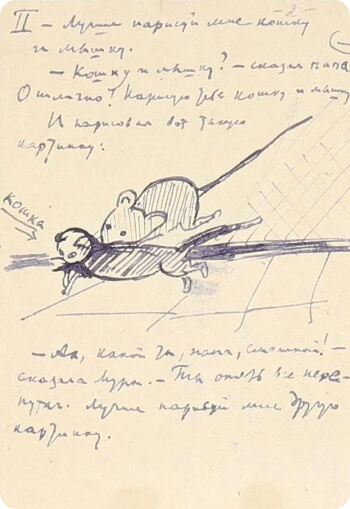 II – Лучше нарисуй мне кошку
– 2 –
и мышку.
– Кошку и мышку? – сказал папа
Отлично! Нарисую тебе кошку и мышку
И нарисовал вот такую
картинку:
КОШКА
– Ах, какой ты, папа, смешной! –
сказала Мура. – Ты опять все пере-
путал. Лучше нарисуй мне другую
картинку.